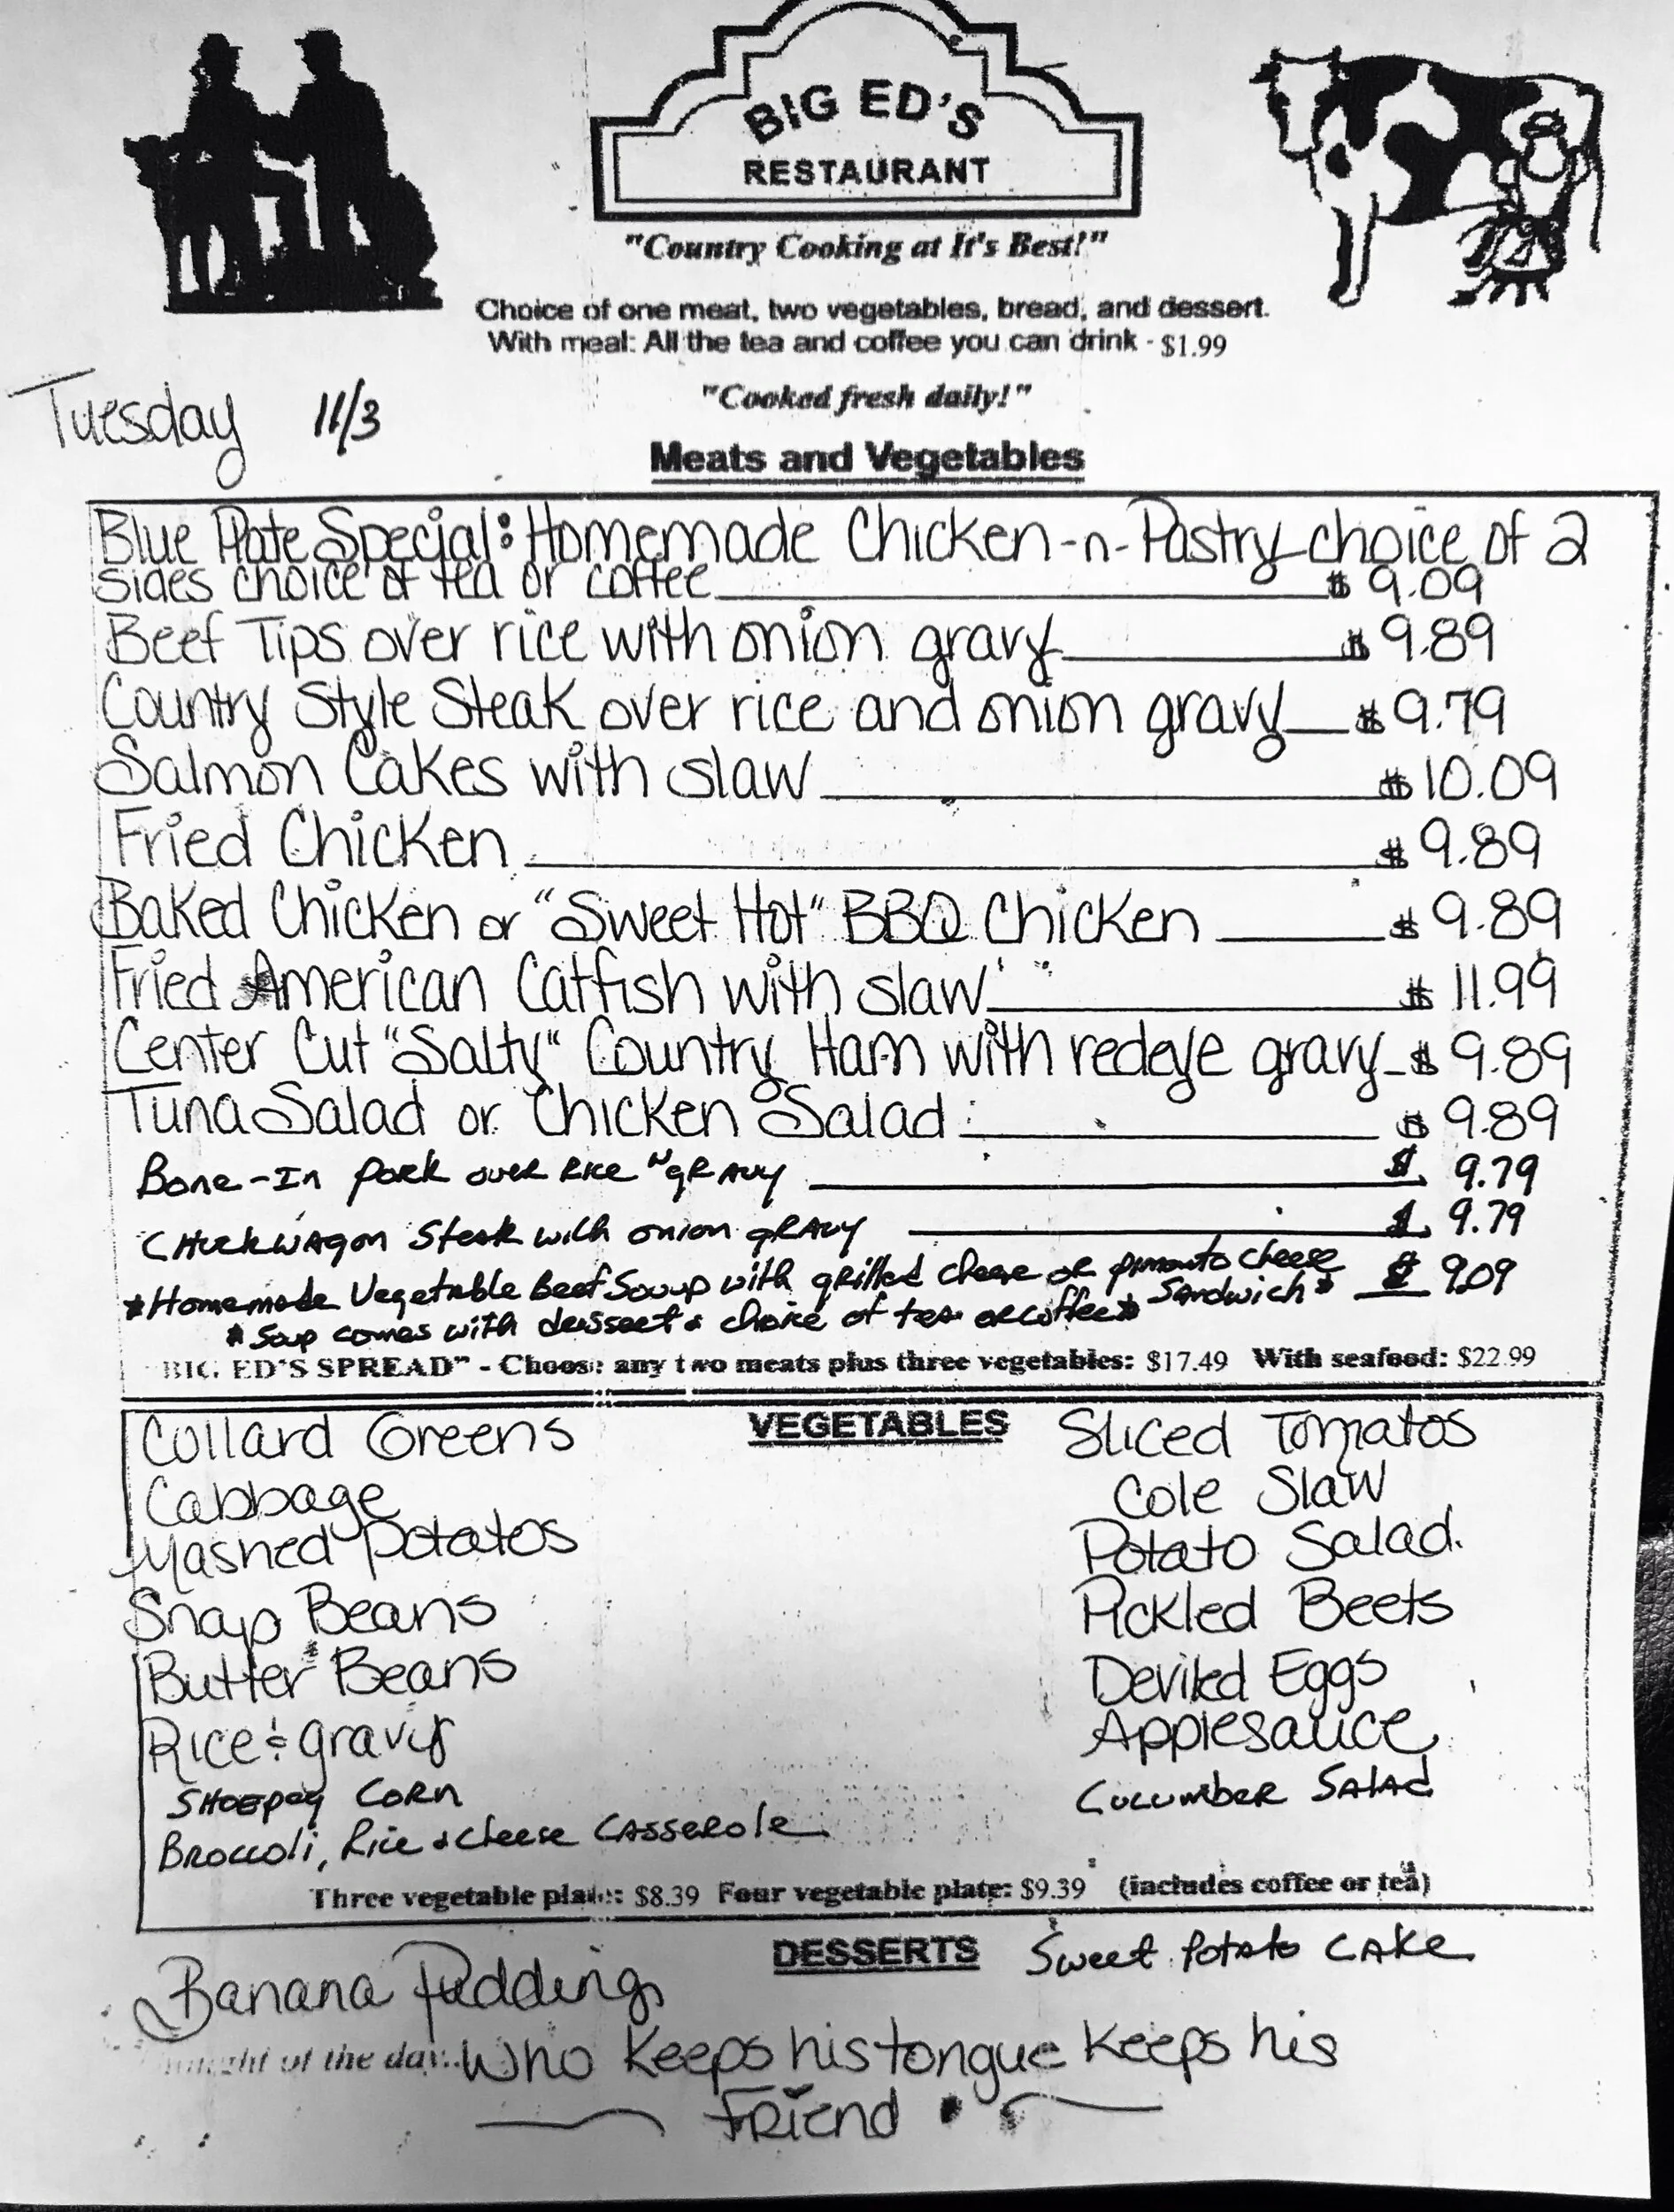 BIG ED'S
RESTAURANT
"Country Cooking at It's Best!"
Choice of one meat, two vegetables, bread, and dessert.
With meal: All the tea and coffee you can drink - $1.99
"Cooked fresh daily!"
Tuesday 11/3
Meats and Vegetables
Blue Plate Special: Homemade Chicken-n-Pastry choice of 2
sides choice of tea or coffee $ 9.09
Beef Tips over rice with onion gravy $ 9.89
Country Style Steak over rice and onion gravy $ 9.79
Salmon Cakes with slaw $ 10.09
Fried Chicken $ 9.89
Baked Chicken or "Sweet Hot" BBQ Chicken $ 9.89
Fried American Catfish with slaw $ 11.99
Center Cut "Salty" Country Ham with redeye gravy $ 9.89
Tuna Salad or Chicken Salad $ 9.89
Bone-In pork over Rice "N" gravy $ 9.79
Chuckwagon Steak with onion gravy $ 9.79
*Homemade Vegetable Beef Soup with grilled cheese or pimento cheese Sandwich* $ 9.09
*Soup comes with dessert & choice of tea or coffee*
BIG ED'S SPREAD" - Choose any two meats plus three vegetables: $17.49 With seafood: $22.99
VEGETABLES
Collard Greens
Cabbage
Mashed Potatos
Snap Beans
Butter Beans
Rice & gravy
Shoepeg Corn
Broccoli, Rice & Cheese Casserole
Sliced Tomatos
Cole Slaw
Potato Salad.
Pickled Beets
Deviled Eggs
Applesauce
Cucumber Salad
Three vegetable plate: $8.39 Four vegetable plate: $9.39 (includes coffee or tea)
DESSERTS
Banana Pudding
Sweet Potato Cake
of the day... Who Keeps his tongue Keeps his
Friend.